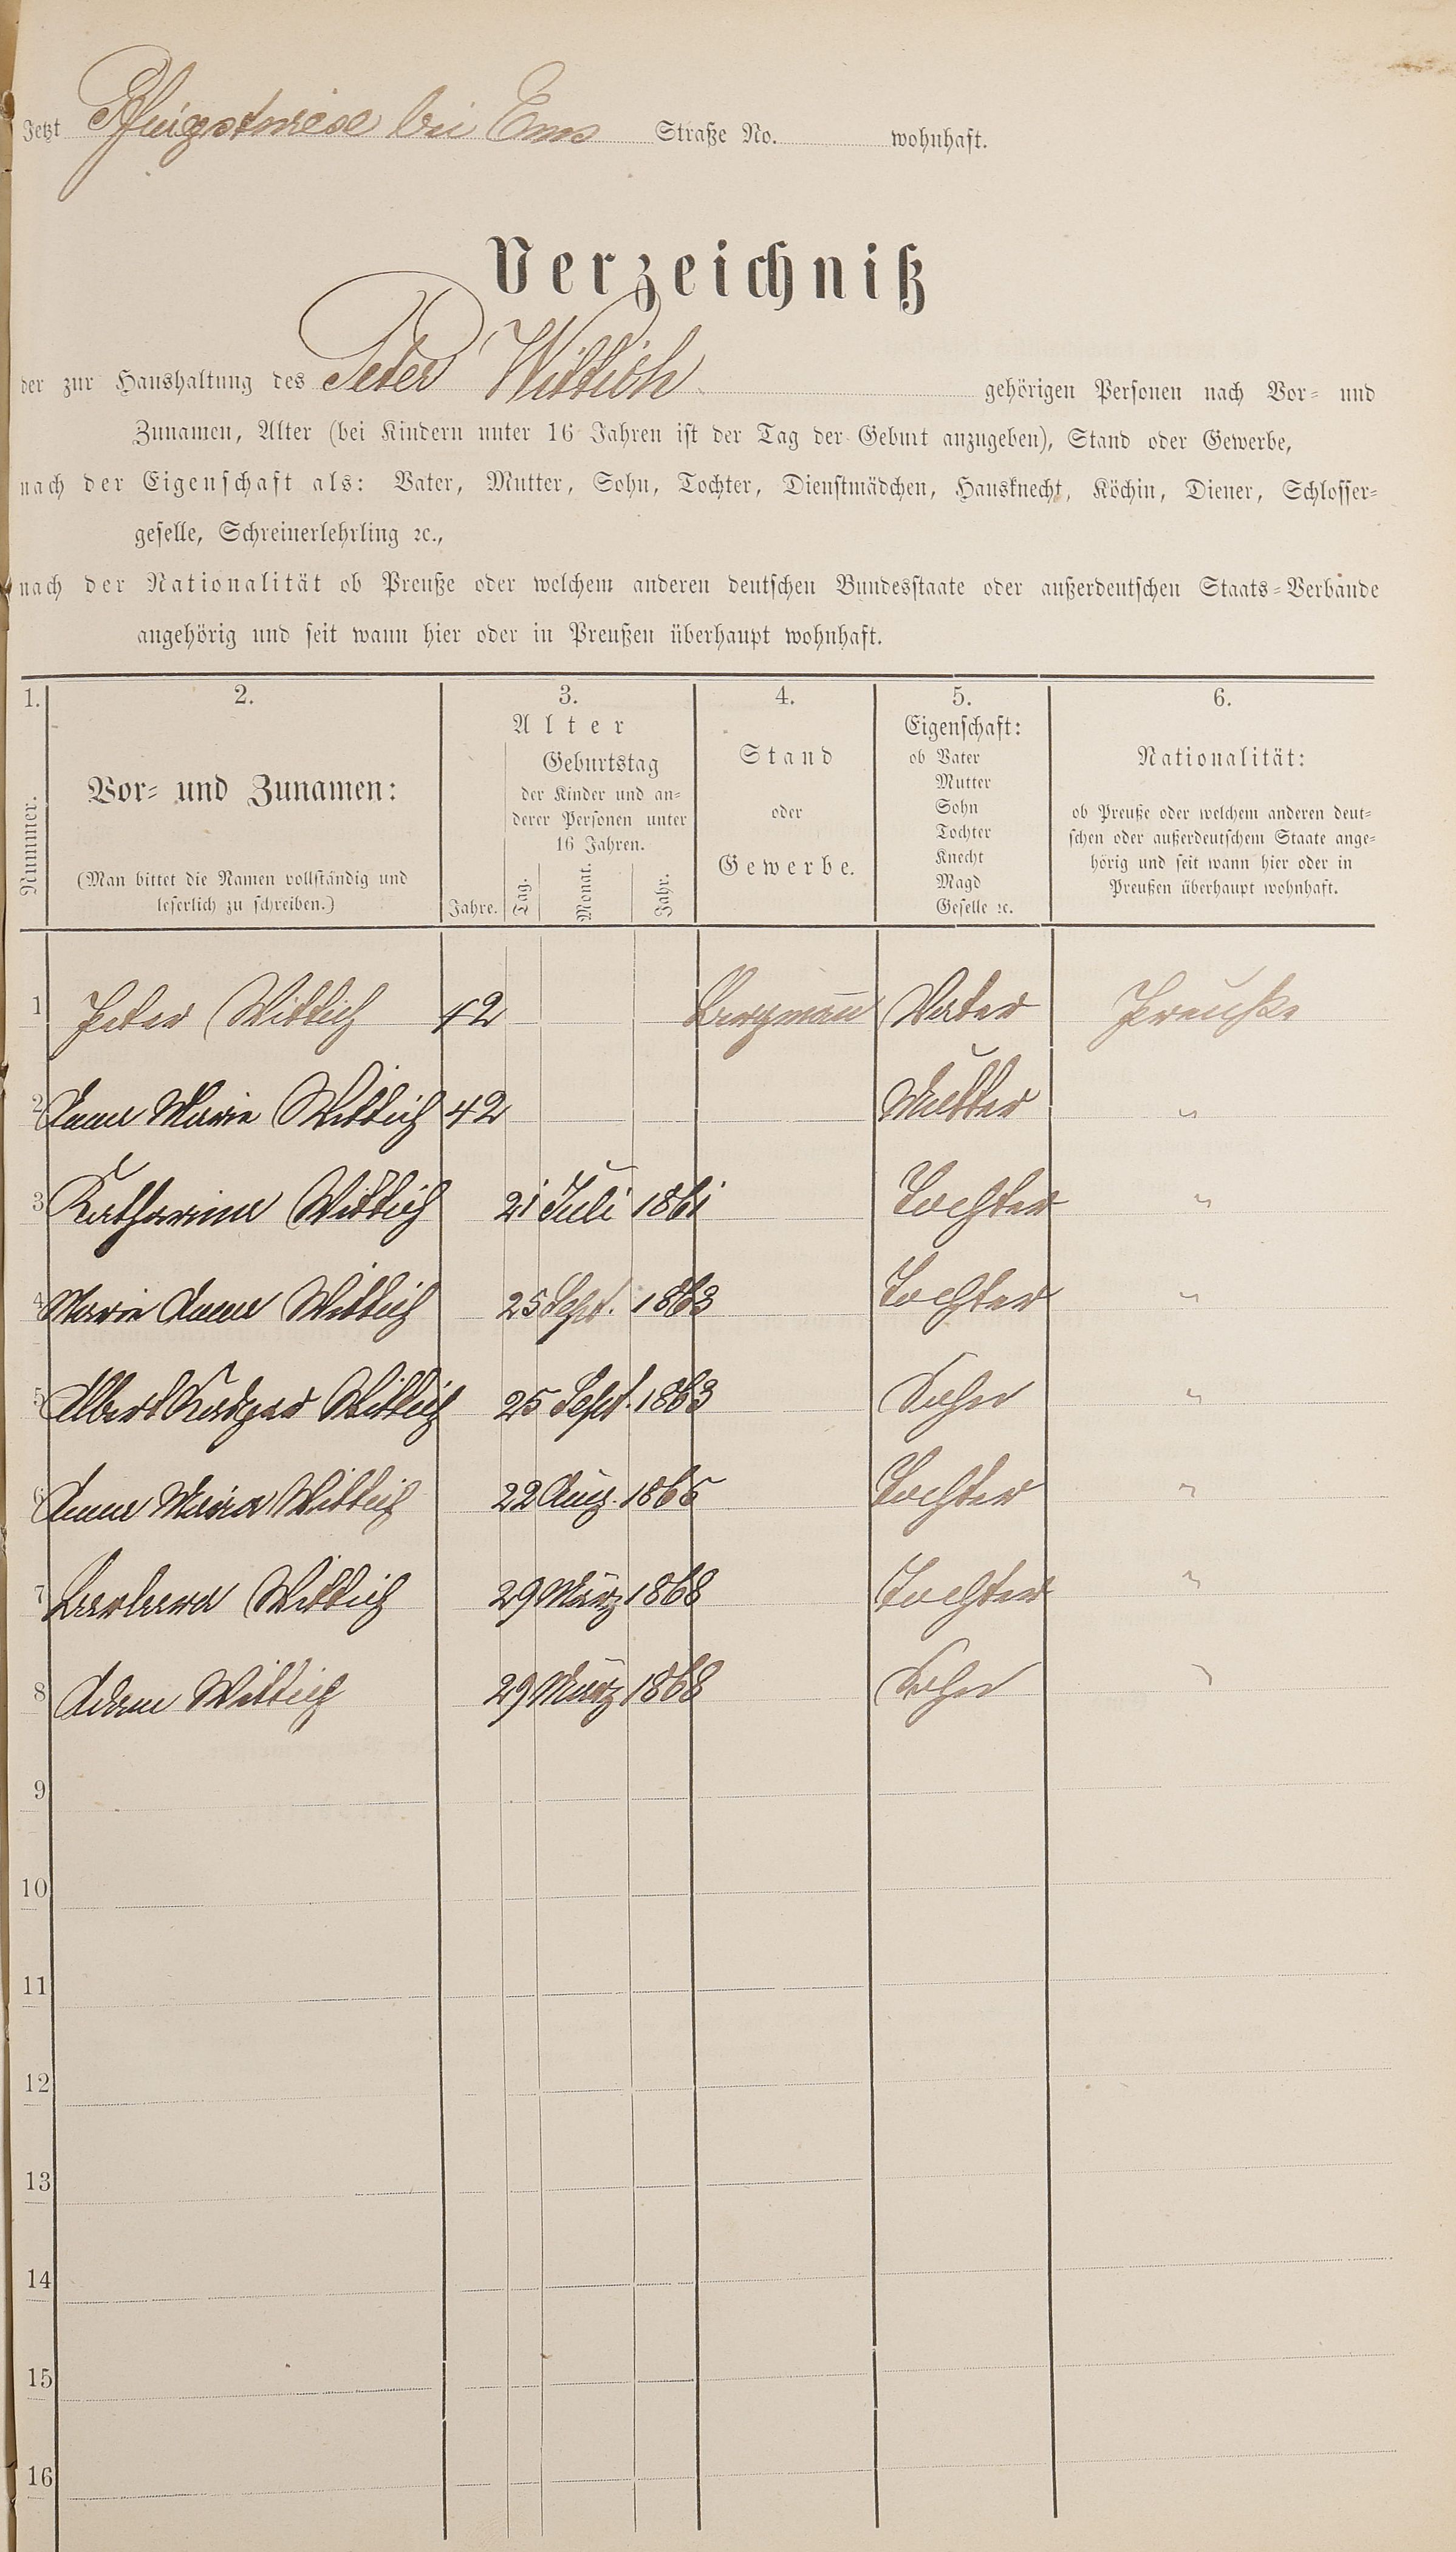 Jetzt Pfingstwiese bei Ems Straße No. wohnhaft.
Verzeichniß
der zur Haushaltung des Peter Wittich gehörigen Personen nach Vor- und
Zunamen, Alter (bei Kindern unter 16 Jahren ist der Tag der Geburt anzugeben), Stand oder Gewerbe,
nach der Eigenschaft als: Vater, Mutter, Sohn, Tochter, Dienstmädchen, Hausknecht, Köchin, Diener, Schlosser-
geselle, Schreinerlehrling ꝛc.,
nach der Nationalität ob Preuße oder welchem anderen deutschen Bundesstaate oder außerdeutschen Staats-Verbande
angehörig und seit wann hier oder in Preußen überhaupt wohnhaft.
1. 2. 3. 4. 5. 6.
Nummer.
Vor- und Zunamen:
(Man bittet die Namen vollständig und
leserlich zu schreiben.)
Alter
Jahre.
Geburtstag
der Kinder und an-
derer Personen unter
16 Jahren.
Tag. Monat. Jahr.
Stand
oder
Gewerbe.
Eigenschaft:
ob Vater
Mutter
Sohn
Tochter
Knecht
Magd
Geselle ꝛc.
Nationalität:
ob Preuße oder welchem anderen deut-
schen oder außerdeutschem Staate ange-
hörig und seit wann hier oder in
Preußen überhaupt wohnhaft.
1 Peter Wittich 42 Bergmann Vater Preuße
2 Anna Marie Wittich 42 Mutter "
3 Katharina Wittich 21 Juli 1861 Tochter "
4 Marie Anna Wittich 25 Sept. 1863 Tochter "
5 Albert Wittich 25 Sept. 1863 Sohn "
6 Anna Maria Wittich 22 Aug. 1865 Tochter "
7 Barbara Wittich 29 März 1868 Tochter "
8 Adam Wittich 29 März 1868 Sohn "
9
10
11
12
13
14
15
16